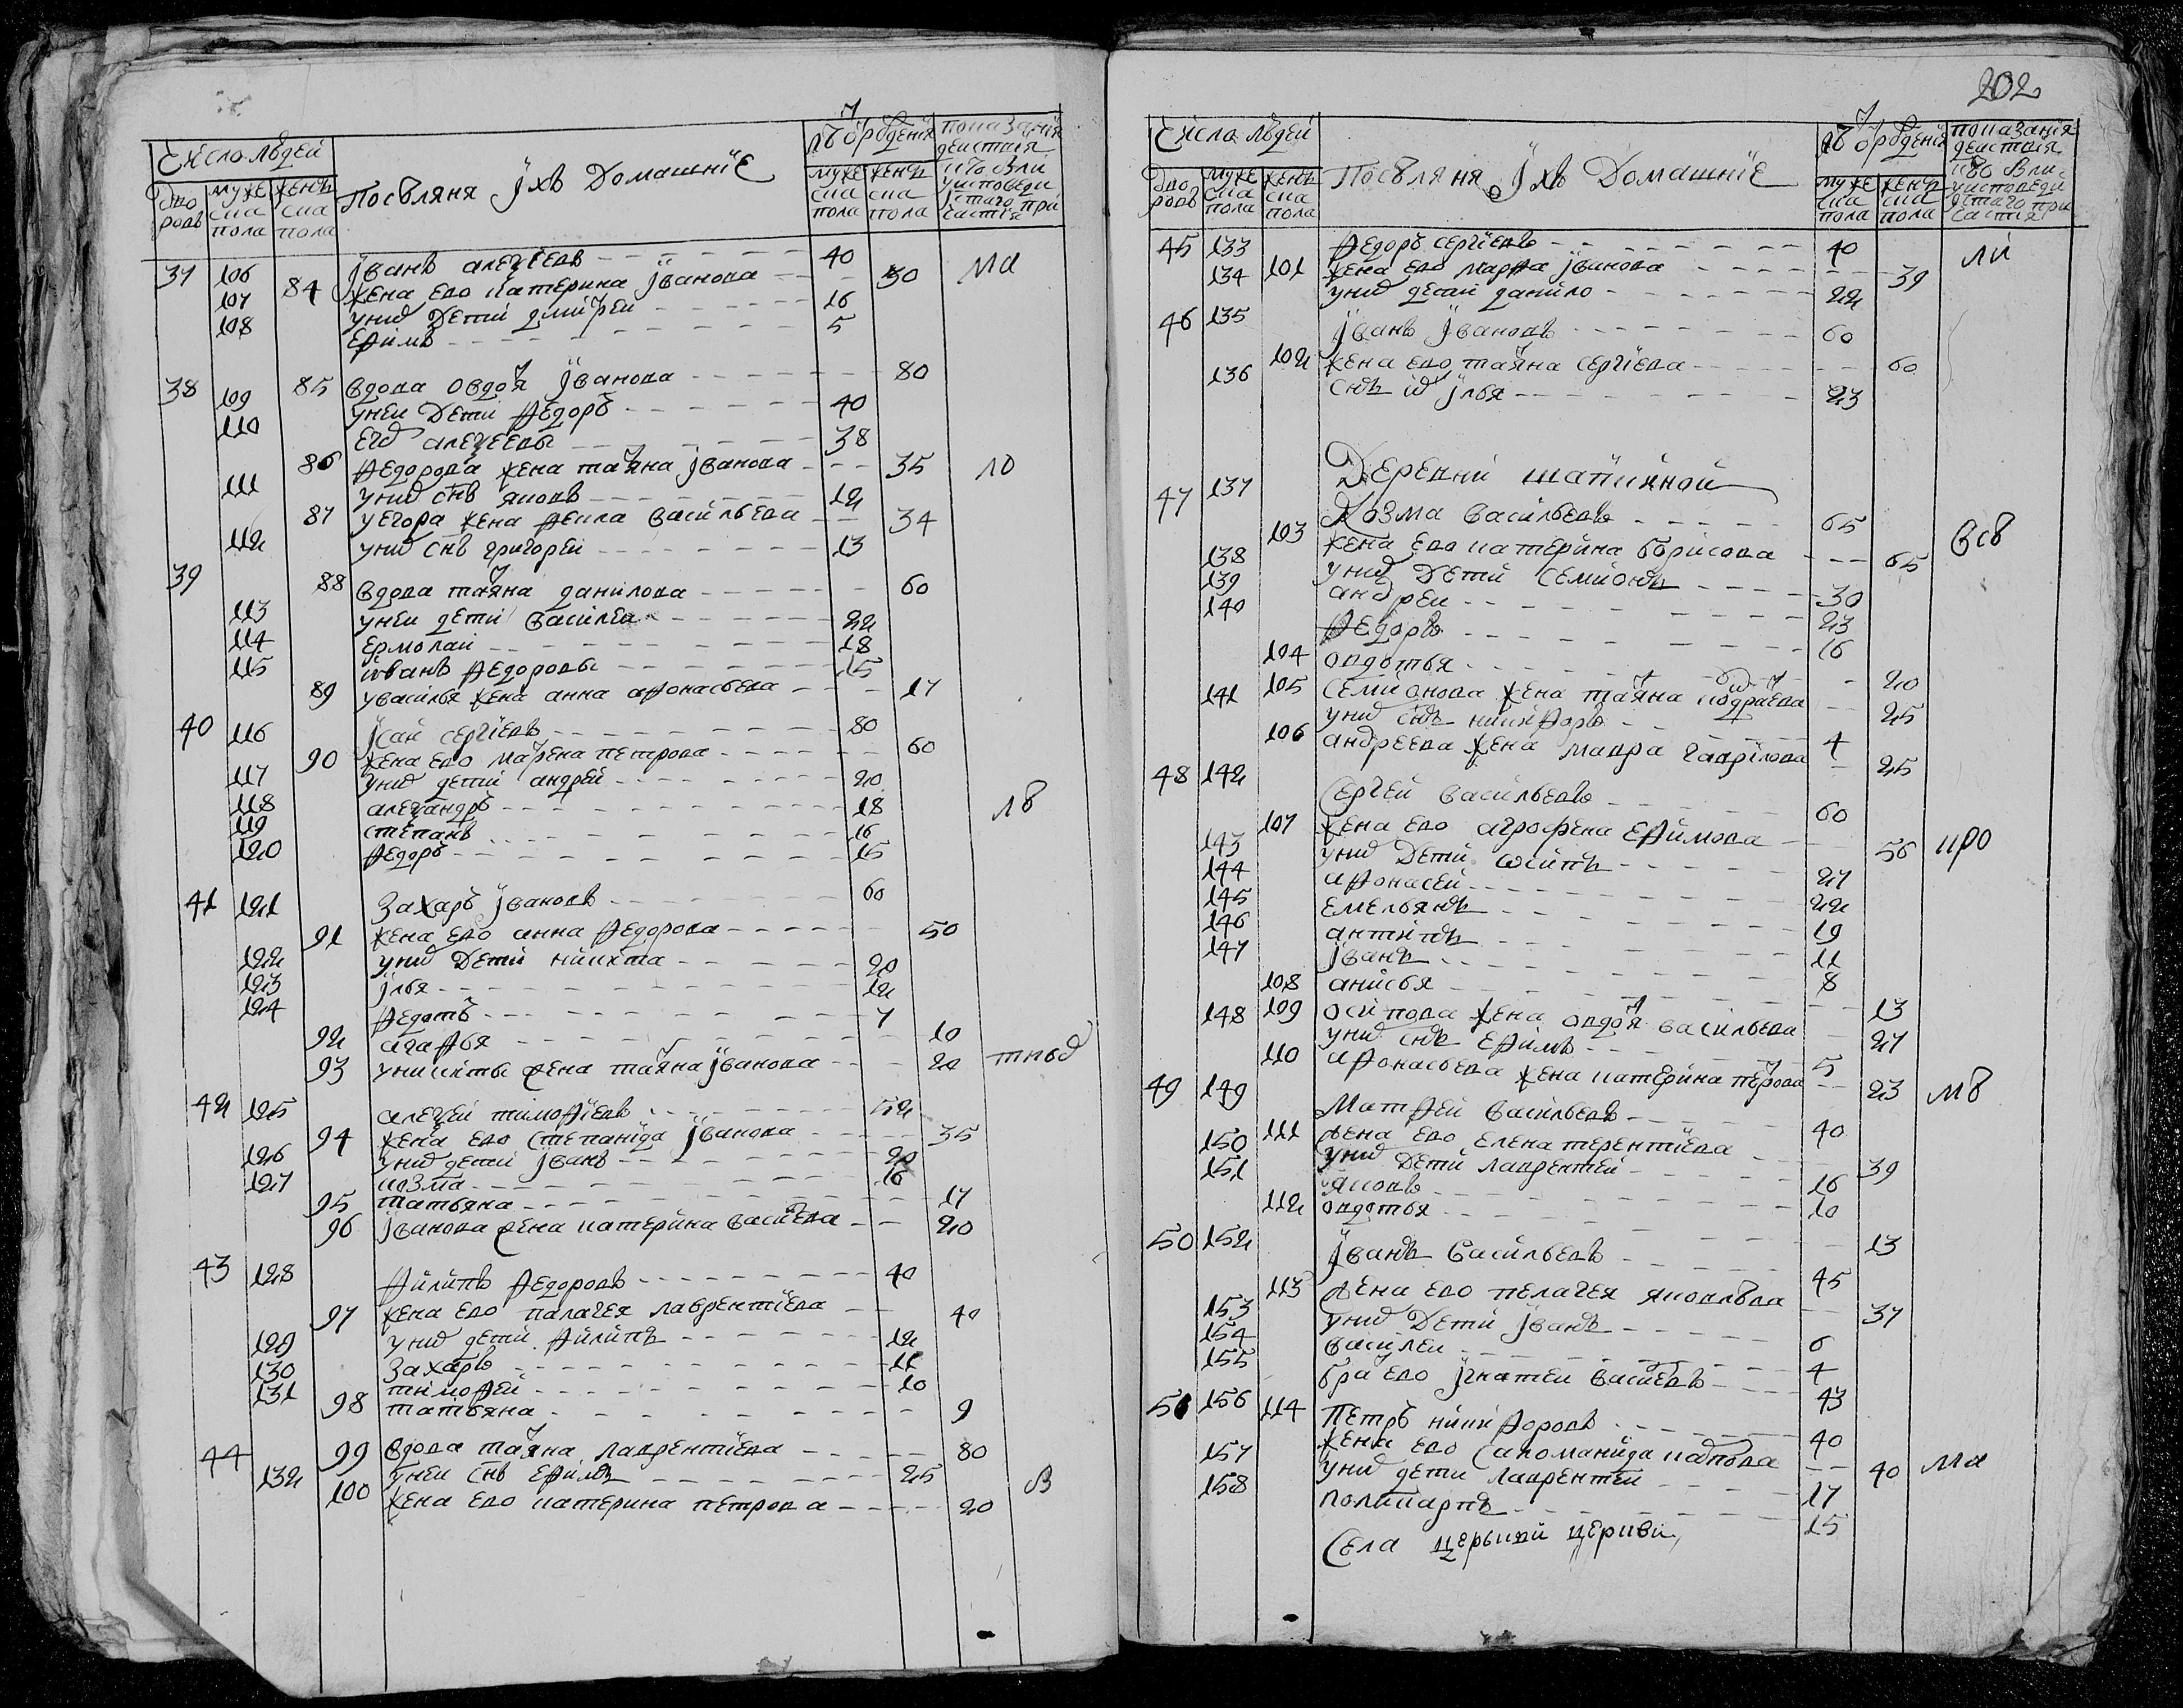 число людей
Посацкия їхъ домашнїе
ѿ рождения
показания действия
дворовъ
мужеска пола
женска пола
мужеска пола
женска пола
кто были у исповеди и святаго причастия
37 106 їванъ алеѯѣевъ 40 ма
84 жена ево катерина їванова 30
107 у нихъ дети дмитрей 16
108 ефимъ 5
38 85 вдова овдотя їванова 80
109 у неи дети федоръ 40
110 егоръ алеѯеевы 38
86 федорова жена татяна їванова 35 ло
111 у нихъ снъ яковъ 12
87 у егора жена фекла васильева 34
112 у нихъ снъ григореи 13
39 88 вдова татяна данилова 60
113 у неи дети василеи 22
114 ермолаи 18
115 иванъ федоровы 15
89 у василья жена анна афонасьева 17
40 116 їсаи сергїевъ 80
90 жена ево марена петрова 60
117 у нихъ дети андрей 20
118 алеѯандръ 18 лв
119 степанъ 16
120 федоръ 15
41 121 захаръ ївановъ 60
91 жена ево анна федорова 50
122 у нихъ дети никита 20
123 їлья 12
124 федотъ 7
92 агафья 10
93 у никиты жена татяна їванова 20
42 125 алеѯей тимофїевъ 52
94 жена ево степанїда їванова 35
126 у нихъ дети їванъ 20
127 козма 16
95 татьяна 17
96 їванова жена катерина васильева 20
43 128 филипъ федоровъ 40
97 жена ево палагея лаврентїева 40
129 у нихъ дети филипъ 12
130 захаръ 11
131 тимофей 10
98 татьяна 9
44 99 вдова татяна лаврентїева 80
132 у неи снъ ефимъ 25 в
100 жена ево катерина петрова 20
202
число людей
Посацкия їхъ домашнїе
ѿ рождения
показания действия
дворовъ
мужеска пола
женска пола
мужеска пола
женска пола
кто были у исповеди и святаго причастия
45 133 федоръ сергїевъ 40 ли
101 жена ево марфа їванова 39
134 у нихъ дети данило 22
46 135 їванъ ївановъ 60
102 жена ево татяна сергїева 60
136 снъ їхъ їлья 23
Деревни
47 137 Козма васильевъ 65 всв
103 жена ево катерина борисова 65
138 у нихъ дети семионъ 30
139 андреи 23
140 федоръ 16
104 овдотья 20
105 семионова жена татяна кодратева 25
141 у нихъ снъ никифоръ 4
106 андреева жена мавра гаврилова 25
48 142 Сергей васильевъ 60
107 жена ево агрофена ефимова 56 про
143 у нихъ дети осипъ 27
144 афонасей 22
145 емельянъ 19
146 антипъ 11
147 їванъ 8
108 анисья 13
109 осипова жена овдотя васильева 27
148 у нихъ снъ ефимъ 5
110 афонасьева жена катерина петрова 23
49 149 Матфей васильевъ 40 мв
111 жена ево елена терентїева 39
150 у нихъ дети лаврентей 16
151 яковъ 10
112 овдотья 13
50 152 їванъ васильевъ 45
113 жена ево пелагея яковльва 37
153 у нихъ дети їванъ 6
154 василеи 4
155 братъ ево їгнатеи васильевъ 43
51 156 Петръ никифоровъ 40
114 жена ево саломанида карпова 40 ма
157 у нихъ дети лаврентей 17
158 поликарпъ 15
Села церькви